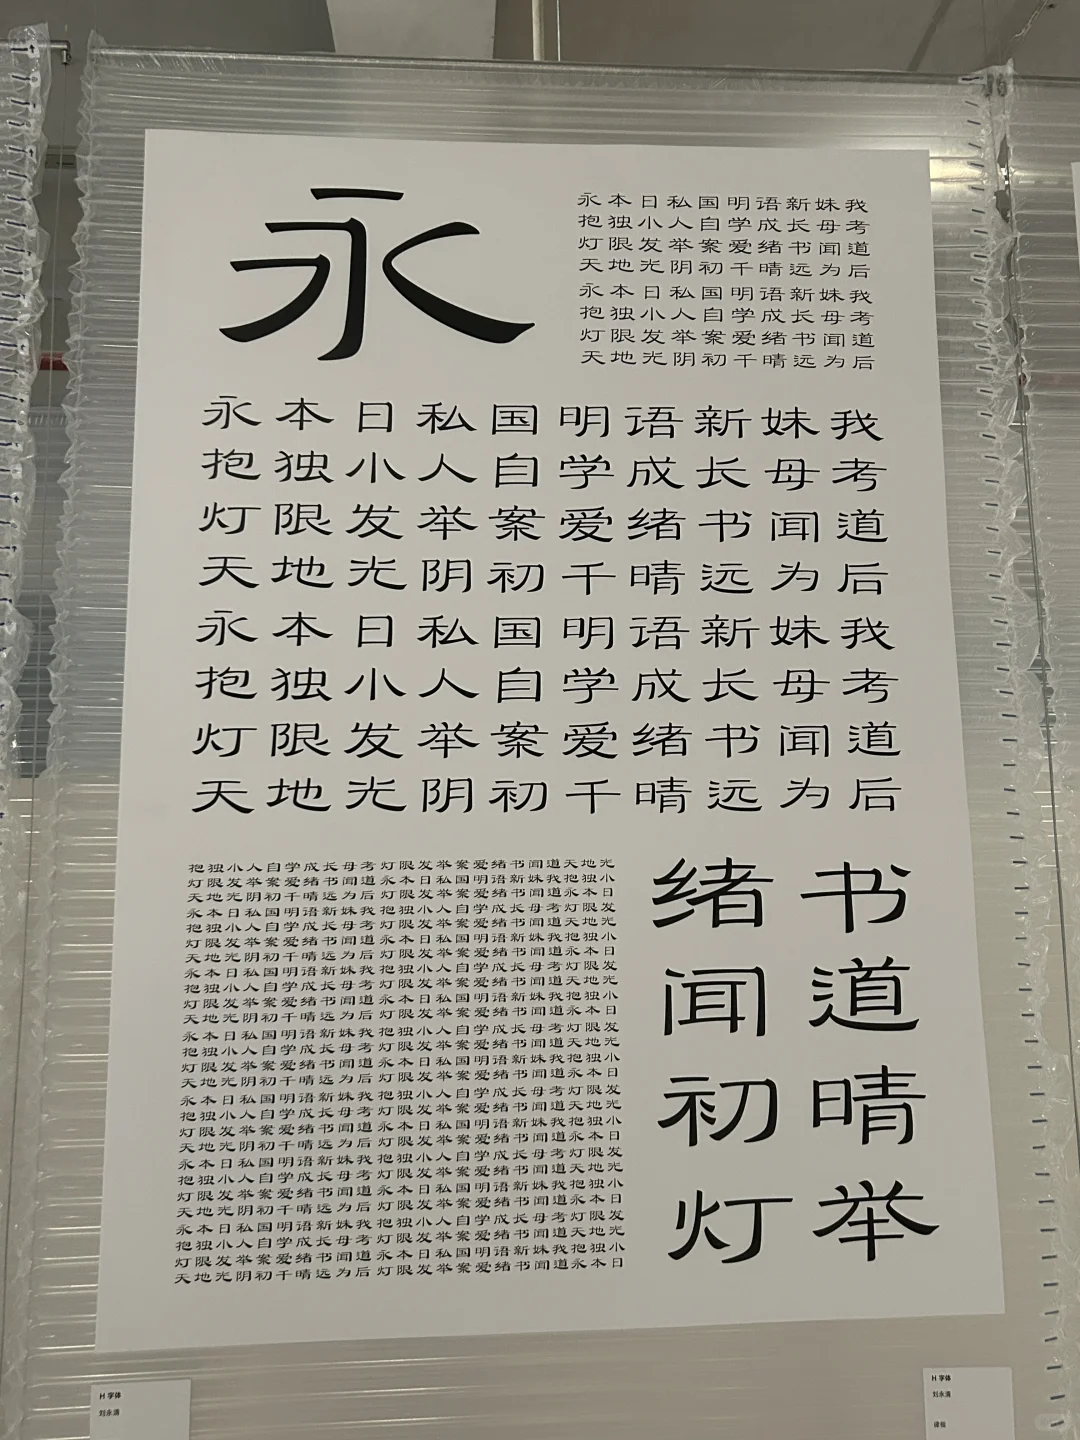 永
永本日私国明语新妹我
抱独小人自学成长母考
灯限发举案爱绪书闻道
天地光阴初千晴远为后
永本日私国明语新妹我
抱独小人自学成长母考
灯限发举案爱绪书闻道
天地光阴初千晴远为后
永本日私国明语新妹我
抱独小人自学成长母考
灯限发举案爱绪书闻道
天地光阴初千晴远为后
永本日私国明语新妹我
抱独小人自学成长母考
灯限发举案爱绪书闻道
天地光阴初千晴远为后
抱独小人自学成长母考灯限发举案爱绪书闻道天地光
灯限发举案爱绪书闻道永本日私国明语新妹我抱独小
天地光阴初千晴远为后灯限发举案爱绪书闻道永本日
永本日私国明语新妹我抱独小人自学成长母考灯限发
抱独小人自学成长母考灯限发举案爱绪书闻道天地光
灯限发举案爱绪书闻道永本日私国明语新妹我抱独小
天地光阴初千晴远为后灯限发举案爱绪书闻道永本日
永本日私国明语新妹我抱独小人自学成长母考灯限发
抱独小人自学成长母考灯限发举案爱绪书闻道天地光
灯限发举案爱绪书闻道永本日私国明语新妹我抱独小
天地光阴初千晴远为后灯限发举案爱绪书闻道永本日
永本日私国明语新妹我抱独小人自学成长母考灯限发
抱独小人自学成长母考灯限发举案爱绪书闻道天地光
灯限发举案爱绪书闻道永本日私国明语新妹我抱独小
天地光阴初千晴远为后灯限发举案爱绪书闻道永本日
永本日私国明语新妹我抱独小人自学成长母考灯限发
抱独小人自学成长母考灯限发举案爱绪书闻道天地光
灯限发举案爱绪书闻道永本日私国明语新妹我抱独小
天地光阴初千晴远为后灯限发举案爱绪书闻道永本日
永本日私国明语新妹我抱独小人自学成长母考灯限发
抱独小人自学成长母考灯限发举案爱绪书闻道天地光
灯限发举案爱绪书闻道永本日私国明语新妹我抱独小
天地光阴初千晴远为后灯限发举案爱绪书闻道永本日
永本日私国明语新妹我抱独小人自学成长母考灯限发
抱独小人自学成长母考灯限发举案爱绪书闻道天地光
灯限发举案爱绪书闻道永本日私国明语新妹我抱独小
天地光阴初千晴远为后灯限发举案爱绪书闻道永本日
绪书
闻道
初晴
灯举
H 字体
刘永清
H 字体
刘永清